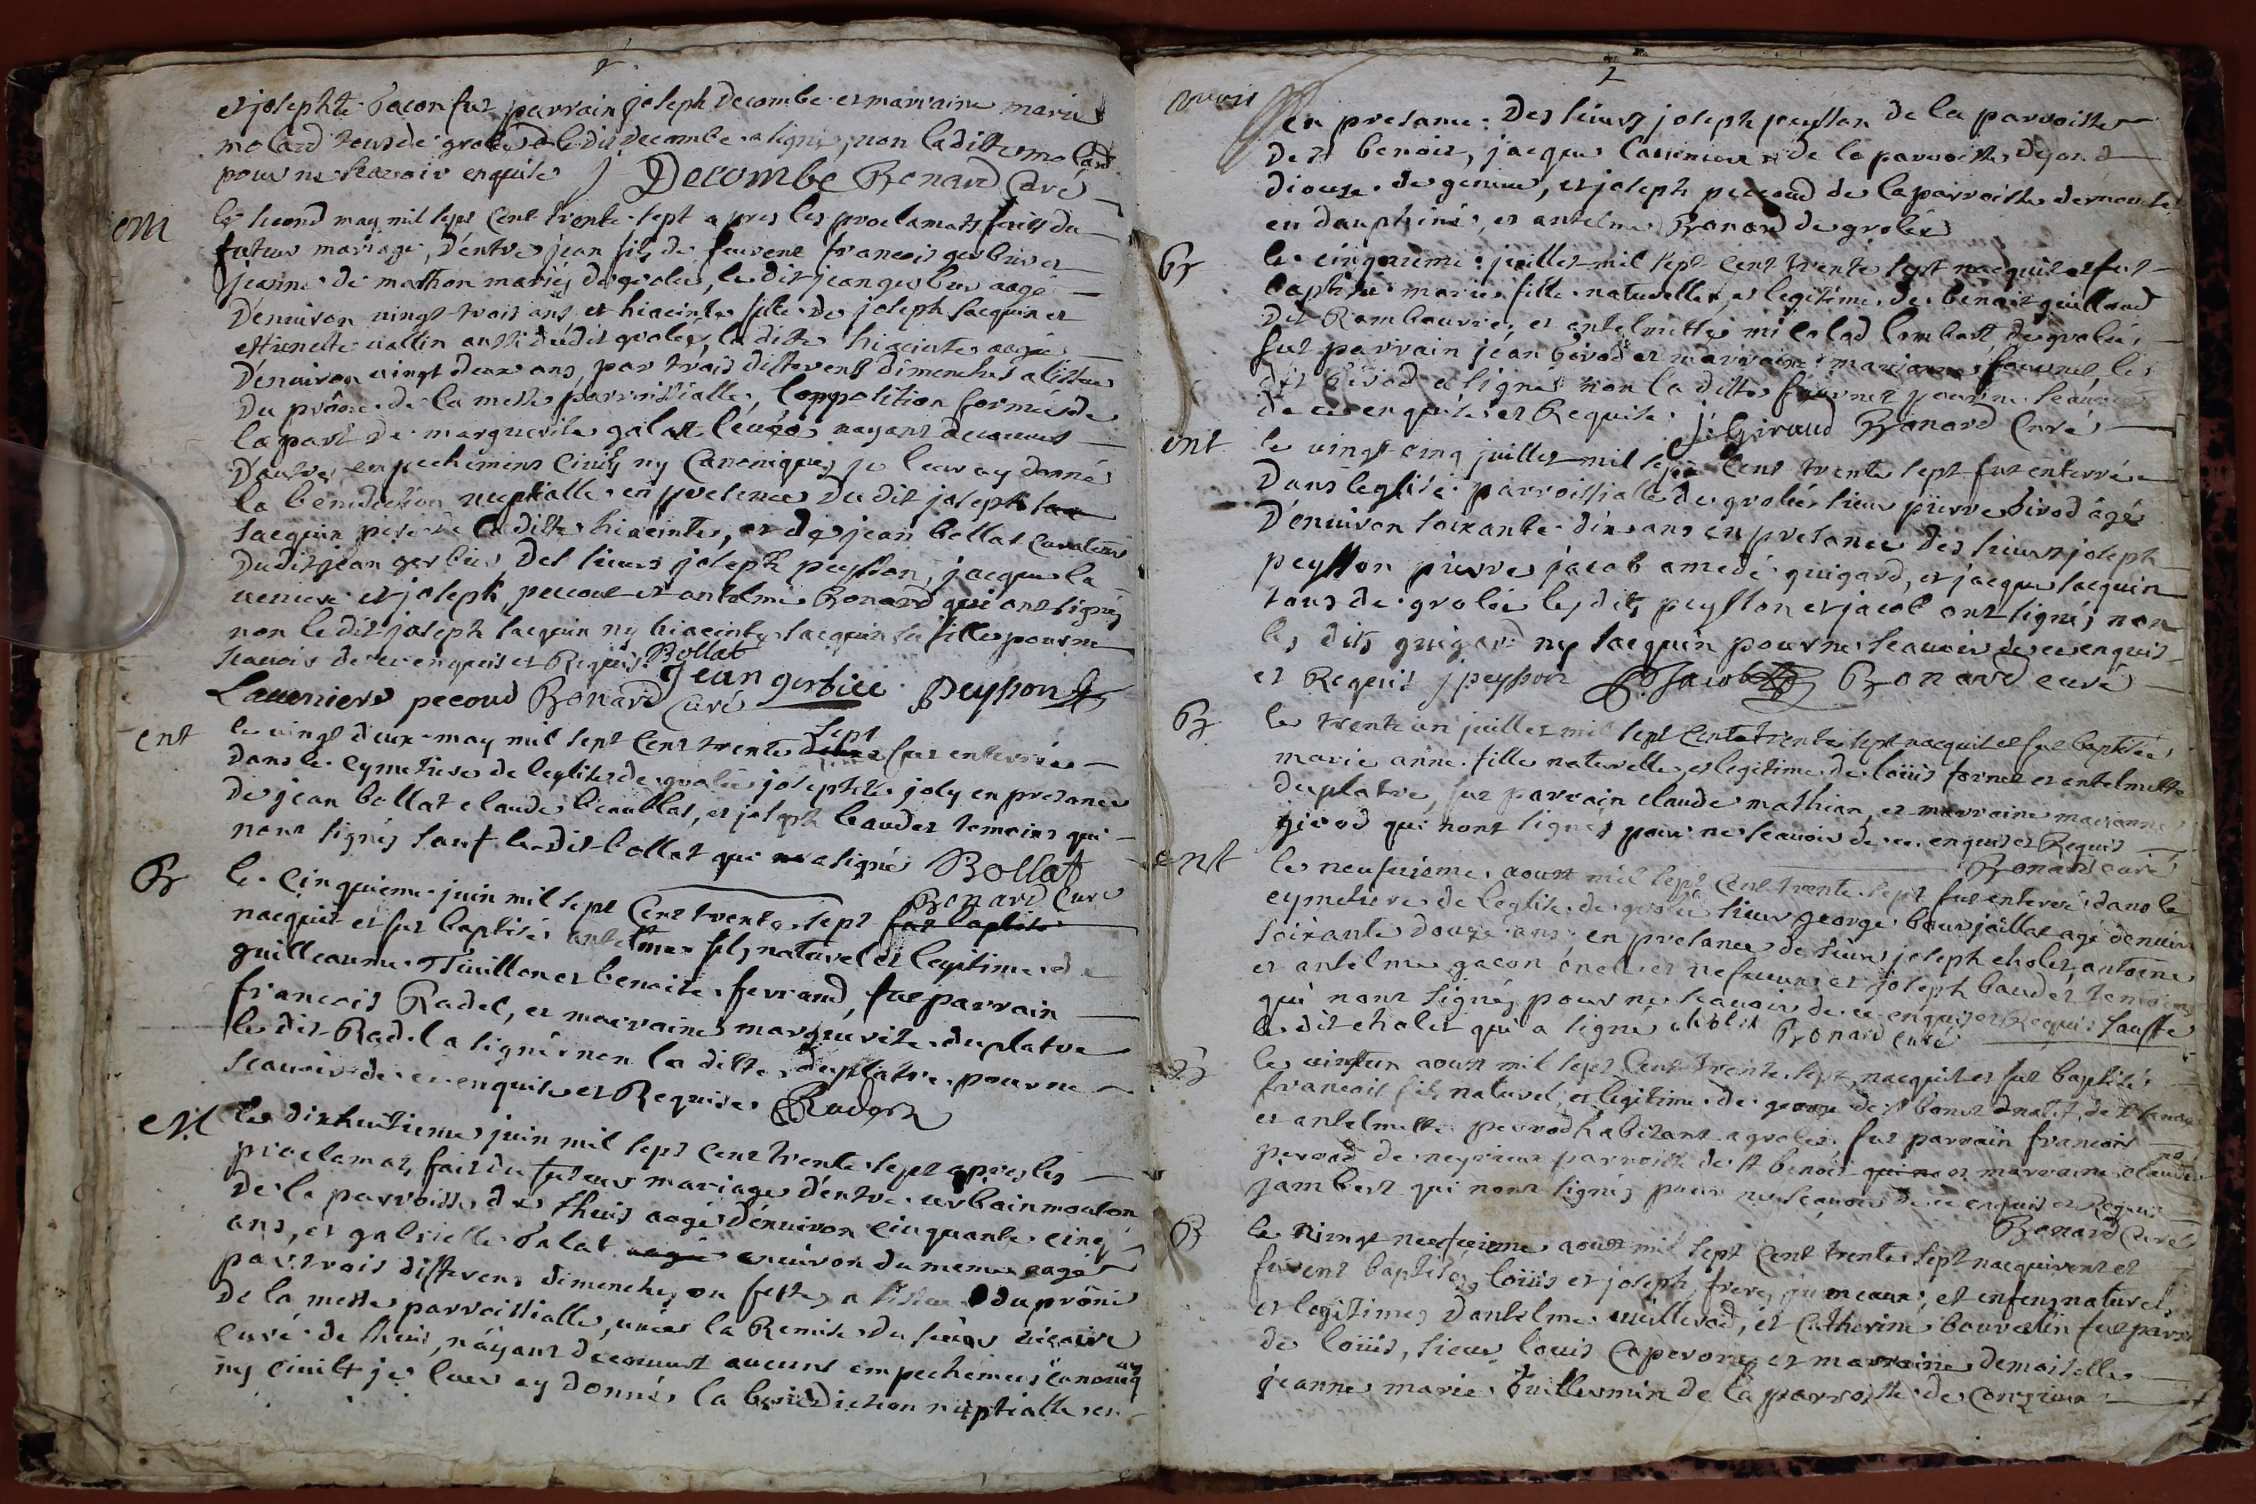 et josephte Gacon fut parrain joseph Decombe et marraine marie
molard tous de grolee le dit decombe a signé, non la ditte molard
pour ne sçavoir enquise J Decombe Bonard Curé
em
le second may mil sept cent trente sept apres les proclamats faits du
futur mariage, d'entre jean fils de feu rene francois gerbier et
jeanne de mathon mariés de grolee, le dit jean gerbier aagé
d'enuiron uingt trois ans et hiacinte fille de joseph sacquin et
uallin aussi dudit grolée, la ditte hiacinte aagée
d'enuiron uingt deux ans, par trois differents dimenches a lissue
du prône de la messe parroissialle, l'opposition formée de
la part de marguerite galat leuée, nayant decouuert
d'autres enpechemens ciuils ny canoniques je leur ay donné
la benediction nuptialle en presence du dit joseph
sacquin pere de la ditte hiacinte, et de jean bollat curateur
dudit jean gerbier des sieurs joseph peysson, jacque la
ueniere et joseph peccoud et antelme Bonard qui ont signés
non le dit joseph sacquin ny hiacinte sacquin sa fille pour ne
scauoir de ce enquis et Requis Bollat
Jean gerbiee Peysson
Lauerniere pecoud Bonard Curé
ent
le uingt deux may mil sept cent trente sept fut enterrée
dans le cymetiere de leglise de grolée josephte joly en presance
de jean bollat claude beaublat, et joseph baudet temoins qui
nont signés sauf le dit bollat qui a signé Bollat
Bonard Curé
B
le cinquieme juin mil sept cent trente sept fut baptise
nacquit et fut baptisé antelme fils naturel et legitime de
guilleaume Tiuillon et benoite ferrand, fut parrain
francois Radel, et marraine marguerite duplatre
le dit Radel a signé non la ditte duplatre pour ne
scauoir de ce enquise et Requise Radel
em
le dixhuitieme juin mil sept cent trente sept apres les
proclamats fait du futur mariage d'entre urbain moulon
de la parroisse de lhuis aagé d'enuiron cinquante cinq
ans, et gabrielle Galat enuiron du meme aage
par trois differens dimenches ou festes a lissue du prône
de la messe parroissialle, uües la Remise du sieur uicaire
curé de lhuis, n'ayant decouuert aucuns empechemens canoniq
ny ciuilt je leur ay donné la benediction nuptialle en
2
en presance des sieurs joseph peysson de la parroisse
de st benoit, jacque Lauerniere de la parroisse
diouse de geneue, et joseph peccoud de la parroisse de
en dauphiné, et antelme Bonard de grolée
B
le cinquieme juillet mil sept cent trente sept nacquit et fut
baptisée marie fille naturelle et legitime de benoit guilland
dit Rambourie, et antelmette lombart de grolée
fut parrain jean Girod et marraine marianne fournet le
dit Girod a signé non la ditte fournet pour ne scauoir
de ce enquise et Requise J Giraud Bonard Curé
ent
le uingt cinq juillet mil sept cent trente sept fut enterré
dans leglise parroissialle de grolée sieur pierre Girod âgé
d'enuiron soixante dix ans en presance des sieurs joseph
peysson pierre jacob amedé guigard, et jacque sacquin
tous de grolée les dits peysson et jacob ont signés non
les dits guigard ny sacquin pour ne scauoir de ce enquis
et Requis j peysson Jacob Bonard curé
B
le trente un juillet mil sept cent trente sept nacquit et fut baptisée
marie anne fille naturelle et legitime de loüis fornet et antelmette
duplatre, fut parrain claude mathian, et marraine marianne
girod qui nont signés pour ne scauoir de ce enquis et Requis
Bonard curé
ent
le neufuieme aoust mil sept cent trente sept fut enteré dans le
cymetiere de leglise de grolée sieur george bourjaillat agé denuiron
soixante douze ans, en presance de sieurs joseph cholet, antoine
et antelme gacon oncle et nefueur et joseph baudet temoins
qui nont signés pour ne scauoir de ce enquis et Requis sauffe
le dit cholet qui a signé cholet Bonard curé
B
le uintun aoust mil sept cent trente sept nacquit et fut baptisé
francois fils naturel et legitime de george de st bonet
et antelmette perrod habitant a grolee fut parrain francois
perood de neyrieux parroisse de st benoit et marraine claudine
jambert qui nont signés pour ne scauoir de ce enquis et Requis
Bonard Curé
B
le uingt neufuieme aoust mil sept cent trente sept nacquirent et
furent baptisés loüis et joseph freres jumeaux, et enfens naturels
et legitimes dantelme uuillerod, et catherine bourdin fut parrain
de loüis, sieur louis Caperony et marraine demoiselle
jeanne marie Guillermin de la parroisse de Conzieux